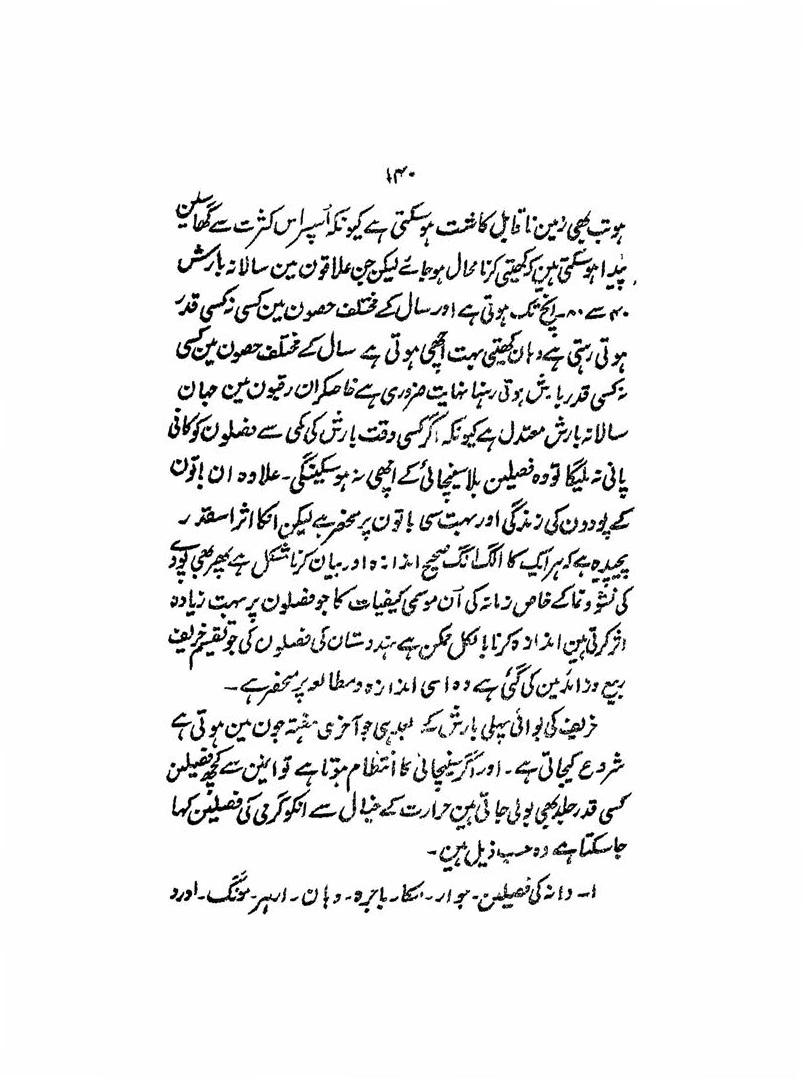 ۱۴۰
ہو تب بھی زمین ناقابل کاشت ہوسکتی ہے کیونکہ اُسپر اس کثرت سے گھاسین
پیدا ہوسکتی ہین کہ کھیتی کرنا محال ہوجائے لیکن جن علاقون مین سالانہ بارش
۴۰ سے ۸۰ ۔ انچ تک ہوتی ہے اور سال کے مختلف حصون مین کسی نہ کسی قدر
ہوتی رہتی ہے وہان کھیتی بہت اچھی ہوتی ہے سال کے مختلف حصون مین کسی
نہ کسی قدر بارش ہوتی رہنا نہایت ضروری ہے خاصکر ان رقبون مین جہان
سالانہ بارش معتدل ہے کیونکہ اگر کسی وقت بارش کی کمی سے فصلون کو کافی
پانی نہ ملیگا تو وہ فصلین بلا سینچائی کے اچھی نہ ہوسکینگی۔ علاوہ ان باتون
کے پودون کی زندگی اور بہت سی باتون پر منحصر ہے لیکن انکا اثر اسقدر
پیچیدہ ہے کہ ہر ایک کا الگ الگ صحیح اندازہ اور بیان کرنا مشکل ہے پھر بھی پودے
کی نشو و نما کے خاص زمانہ کی اُن موسمی کیفیات کا جو فصلون پر بہت زیادہ
اثر کرتی ہین اندازہ کرنا بالکل ممکن ہے ہندوستان کی فصلون کی جو تقسیم خریف
ربیع و زائد مین کی گئی ہے وہ اسی اندازہ و مطالعہ پر منحصر ہے۔
خریف کی بوائی پہلی بارش کے بعد ہی جو آخری ہفتہ جون مین ہوتی ہے
شروع کیجاتی ہے۔ اور اگر سینچائی کا انتظام ہوتا ہے تو انین سے کچھ فصلین
کسی قدر جلد بھی بوئی جاتی ہین حرارت کے خیال سے انکو گرمی کی فصلین کہا
جاسکتا ہے وہ حسب ذیل ہین۔
۱۔ دانہ کی فصلین۔ جوار۔ مکا۔ باجرہ۔ دہان۔ ارہر۔ مونگ۔ اورد